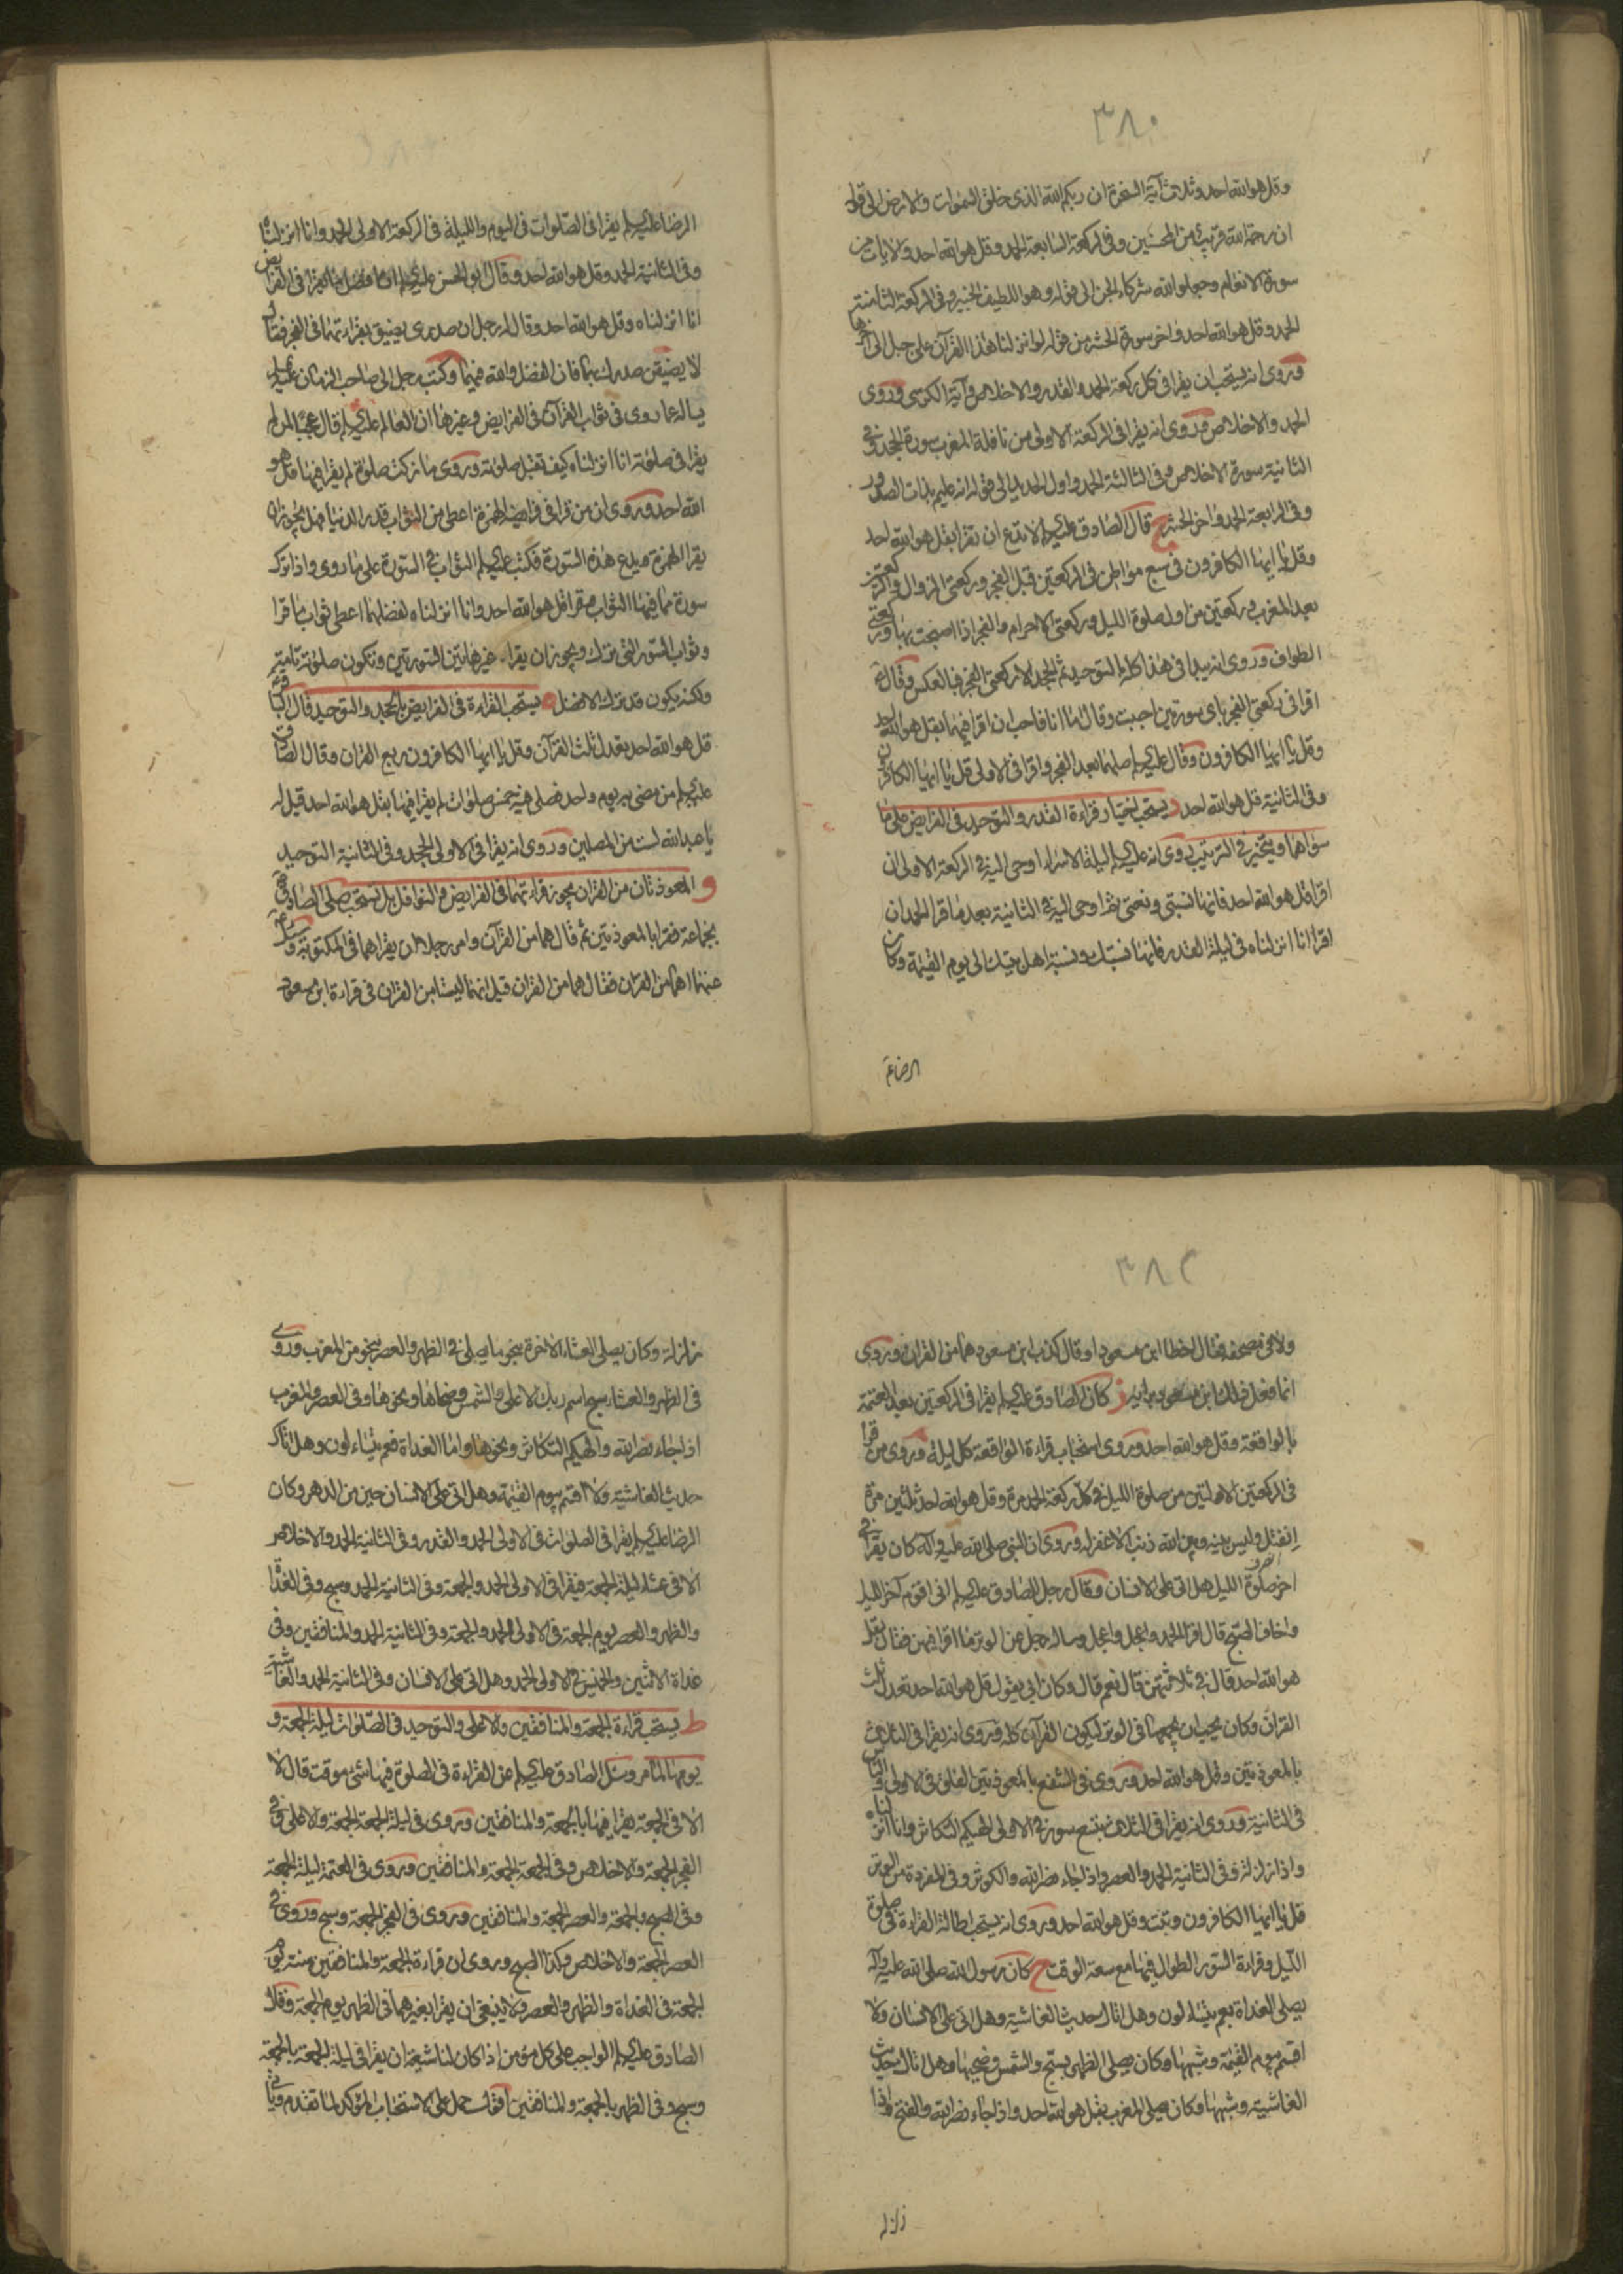 ٣٨٠
وقل هو الله احد وثلث آية السخرة ان ربكم الله الذى خلق السموات والارض الى قوله
ان رحمة الله قريب من المحسنين وفى الركعة السابعة الحمد وقل هو الله احد والايات من
سورة الانعام وجعلوا لله شركاء الجن الى قوله وهو اللطيف الخبير وفى الركعة الثامنة
الحمد وقل هو الله احد واخر سورة الحشر من قوله لو انزلنا هذا القرآن على جبل الى آخرها
وروى انه يستحب ان يقرا فى كل ركعة الحمد والقدر والاخلاص وآية الكرسى وروى
الحمد والاخلاص وروى انه يقرا فى الركعة الاولى من نافلة المغرب سورة الجحد وفى
الثانية سورة الاخلاص وفى الثالثة الحمد واول الحديد الى قوله انه عليم بذات الصدور
وفى الرابعة الحمد واخر الحشر ج قال الصادق عليه السلم لا تدع ان تقرا بقل هو الله احد
وقل يا ايها الكافرون فى سبع مواطن فى الركعتين قبل الفجر وركعتى الزوال والركعتين
بعد المغرب وركعتين من اول صلوة الليل وركعتى الاحرام والفجر اذا اصبحت بها وركعتى
الطواف وروى انه يبدا فى هذا كله بالتوحيد ثم الجحد الا ركعتى الفجر فبالعكس وقال ع
اقرا فى ركعتى الفجر باى سورتين احببت وقال اما انا فاحب ان اقرا فيهما بقل هو الله احد
وقل يا ايها الكافرون وقال عليه السلم صلهما بعد الفجر واقرا فى الاولى قل يا ايها الكافرون
وفى الثانية قل هو الله احد د يستحب اختيار قراءة القدر والتوحيد فى الفرايض على ما
سواهما ويتخير فى الترتيب روى انه عليه السلم ليلة الاسراء اوحى اليه فى الركعة الاولى ان
اقرا قل هو الله احد فانها نسبتى ونعتى ثم اوحى اليه فى الثانية بعد ما قرا الحمد ان
اقرا انا انزلناه فى ليلة القدر فانها نسبتك ونسبة اهل بيتك الى يوم القيمة وكان
الرضا ع
الرضا عليه السلم يقرا فى الصلوات فى اليوم والليلة فى الركعة الاولى الحمد وانا انزلناه
وفى الثانية الحمد وقل هو الله احد وقال ابو الحسن عليه السلم ان افضل ما يقرا فى الفرايض
انا انزلناه وقل هو الله احد وقال له رجل ان صدرى يضيق بقرائتهما فى الفجر فقال
لا يضيقن صدرك بهما فان الفضل والله فيهما وكتب رجل الى صاحب الزمان عليه السلم
يساله عما روى فى ثواب القرآن فى الفرايض وغيرها ان العالم عليه السلم قال عجبا لمن لم
يقرا فى صلوته انا انزلناه كيف تقبل صلوته وروى ما زكت صلوة لم يقرا فيها قل هو
الله احد وروى ان من قرا فى فرايضه الهمزة اعطى من الثواب قدر الدنيا فهل يجوز ان
يقرا الهمزة ويدع هذه السورة فكتب عليه السلم الثواب فى السورة على ما روى واذا ترك
سورة مما فيها الثواب وقرا قل هو الله احد وانا انزلناه لفضلهما اعطى ثواب ما قرا
وثواب السورة التى ترك ويجوز ان يقرا غير هاتين السورتين وتكون صلوته تامة
ولكنه يكون قد ترك الافضل ه يستحب القراءة فى الفرايض بالجحد والتوحيد قال الباقر ع
قل هو الله احد يعدل ثلث القرآن وقل يا ايها الكافرون ربع القران وقال الصادق
عليه السلم من مضى به يوم واحد فصلى فيه خمس صلوات لم يقرا فيها بقل هو الله احد قيل له
يا عبد الله لست من المصلين وروى انه يقرا فى الاولى الجحد وفى الثانية التوحيد
و المعوذتان من القران يجوز قراءتهما فى الفرايض والنوافل بل تستحب صلى الصادق ع
بجماعة فقرا بالمعوذتين ثم قال هما من القرآن وامر رجلا ان يقراهما فى المكتوبة وسئل
عنهما اهما من القران فقال هما من القران قيل انهما ليستا من القران فى قراءة ابن مسعود
٣٨٢
ولا فى مصحفه فقال اخطا ابن مسعود او قال كذب ابن مسعود هما من القران وروى
انما فعل ذلك ابن مسعود برايه ز كان الصادق عليه السلم يقرا فى الركعتين بعد العتمة
بالواقعة وقل هو الله احد وروى استحباب قراءة الواقعة كل ليلة وروى من قرا
فى الركعتين الاولتين من صلوة الليل فى كل ركعة الحمد مرة وقل هو الله احد ثلثين مرة
انفتل وليس بينه وبين الله ذنب الا غفر له وروى ان النبى صلى الله عليه وآله كان يقرا فى
اخر صلوة الليل هل اتى على الانسان وقال رجل للصادق عليه السلم انى اقوم آخر الليل
واخاف الصبح قال اقرا الحمد واعجل واعجل وساله رجل عن الوتر ما اقرا فيهن فقال بقل
هو الله احد قال فى ثلاثتهن قال نعم قال وكان ابى يقول قل هو الله احد تعدل ثلث
القران وكان يحب ان يجمعها فى الوتر ليكون القرآن كله وروى انه يقرا فى الثلاث
بالمعوذتين وقل هو الله احد وروى فى الشفع بالمعوذتين الفلق فى الاولى والناس
فى الثانية وروى انه يقرا فى الثلاث بتسع سور فى الاولى الهيكم التكاثر وانا انزلناه
واذا زلزلت وفى الثانية الحمد والعصر واذا جاء نصر الله والكوثر وفى المفردة من الوتر
قل يا ايها الكافرون وتبت وقل هو الله احد وروى انه يستحب اطالة القراءة فى صلوة
الليل وقراءة السور الطوال فيها مع سعة الوقت ح كان رسول الله صلى الله عليه وآله
يصلى الغداة بعم يتساءلون وهل اتاك حديث الغاشية وهل اتى على الانسان ولا
اقسم بيوم القيمة وشبهها وكان يصلى الظهر بسبح والشمس وضحيها وهل اتاك حديث
الغاشية وشبهها وكان يصلى المغرب بقل هو الله احد واذا جاء نصر الله والفتح واذا
زلزلة
زلزلة وكان يصلى العشاء الاخرة بنحو ما يصلى فى الظهر والعصر بنحو من المغرب وروى
فى الظهر والعشاء سبح اسم ربك الاعلى والشمس وضحاها ونحوها وفى العصر والمغرب
اذا جاء نصر الله والهيكم التكاثر ونحوها واما الغداة فعم يتساءلون وهل اتاك
حديث الغاشية ولا اقسم بيوم القيمة وهل اتى على الانسان حين من الدهر وكان
الرضا عليه السلم يقرا فى الصلوات فى الاولى الحمد والقدر وفى الثانية الحمد والاخلاص
الا فى عشاء ليلة الجمعة فيقرا فى الاولى الحمد والجمعة وفى الثانية الحمد وسبح وفى الغداة
والظهر والعصر يوم الجمعة فى الاولى الحمد والجمعة وفى الثانية الحمد والمنافقين وفى
غداة الاثنين والخميس فى الاولى الحمد وهل اتى على الانسان وفى الثانية الحمد والغاشية
ط يستحب قراءة الجمعة والمنافقين والاعلى والتوحيد فى الصلوات ليلة الجمعة و
يومها لما مر وسئل الصادق عليه السلم عن القراءة فى الصلوة فيها شئ موقت قال لا
الا فى الجمعة يقرا فيها بالجمعة والمنافقين وروى فى ليلة الجمعة الجمعة والاعلى وفى
الفجر الجمعة والاخلاص وفى الجمعة الجمعة والمنافقين وروى فى العتمة ليلة الجمعة
وفى الصبح بالجمعة والعصر الجمعة والمنافقين وروى فى الفجر الجمعة وسبح وروى فى
العصر الجمعة والاخلاص وكذا الصبح وروى ان قراءة الجمعة والمنافقين سنة يوم
الجمعة فى الغداة والظهر والعصر ولا ينبغى ان يقرا بغيرهما فى الظهر يوم الجمعة وقال
الصادق عليه السلم الواجب على كل مؤمن اذا كان لنا شيعة ان يقرا فى ليلة الجمعة بالجمعة
وسبح وفى الظهر بالجمعة والمنافقين اقول حمل على الاستحباب المؤكد لما تقدم وياتى